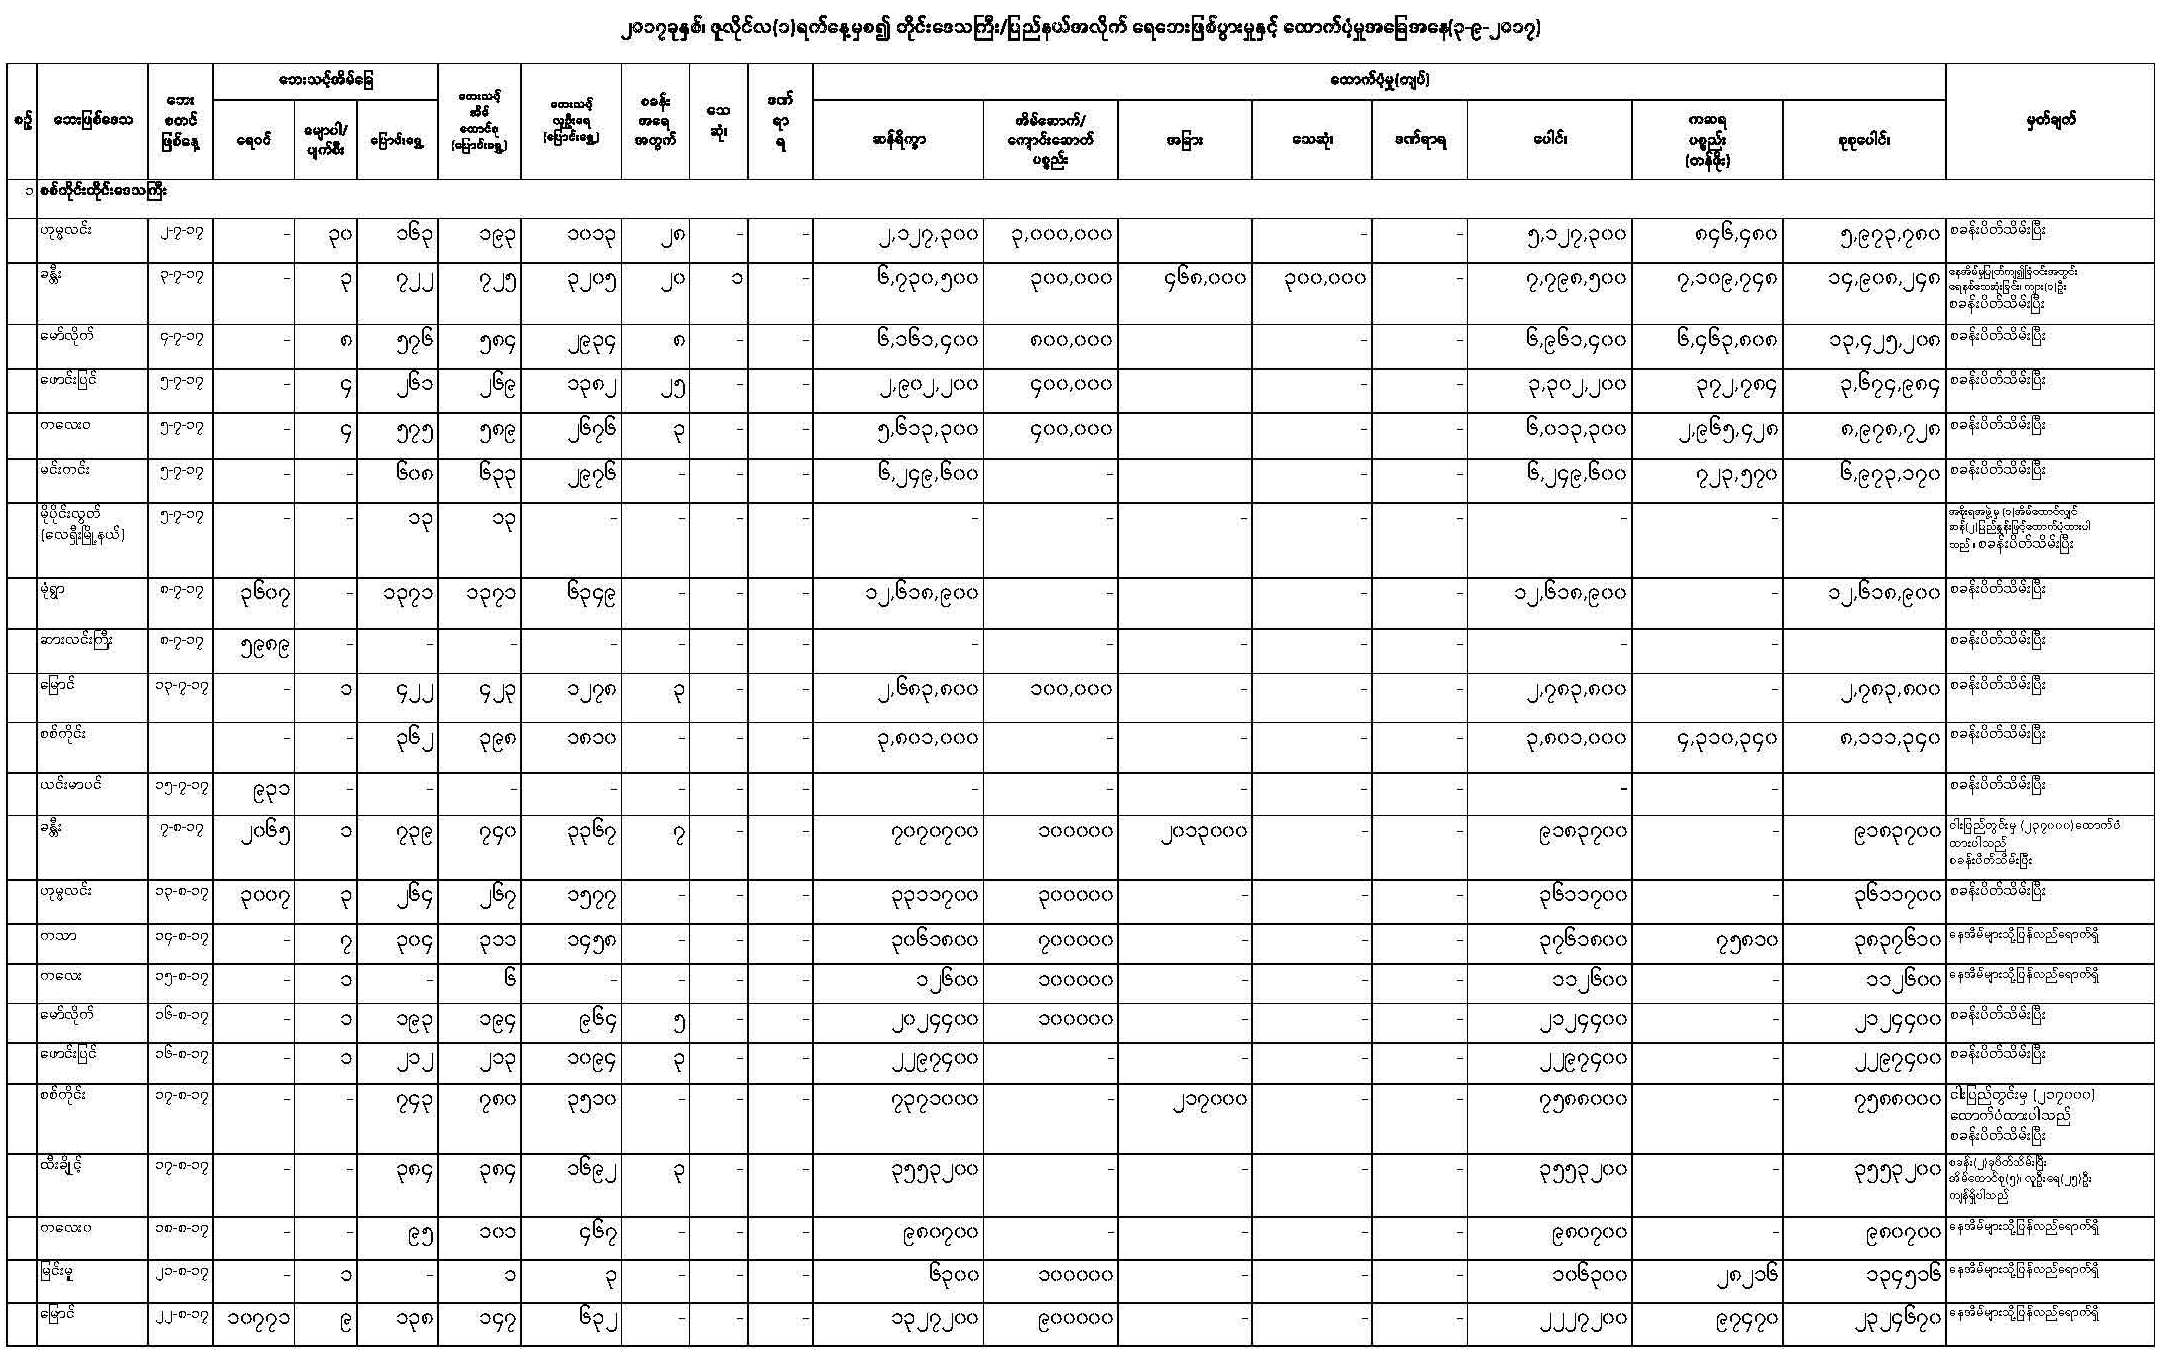 ၂၀၁၇ခုနှစ်၊ ဇူလိုင်လ(၁)ရက်နေ့မှစ၍ တိုင်းဒေသကြီး/ပြည်နယ်အလိုက် ရေဘေးဖြစ်ပွားမှုနှင့် ထောက်ပံ့မှုအခြေအနေ(၃-၉-၂၀၁၇)
စဉ် ဘေးဖြစ်ဒေသ ဘေးစတင်ဖြစ်နေ့ ဘေးသင့်အိမ်ခြေ ဘေးသင့်အိမ်ထောင်စု(ပြောင်းရွှေ့) ဘေးသင့်လူဦးရေ(ပြောင်းရွှေ့) စခန်းအရေအတွက် သေဆုံး ဒဏ်ရာရ ထောက်ပံ့မှု(ကျပ်) မှတ်ချက်
ရေဝင် မျောပါ/ပျက်စီး ပြောင်းရွှေ့ ဆန်ရိက္ခာ အိမ်ဆောက်/ကျောင်းဆောတ်ပစ္စည်း အခြား သေဆုံး ဒဏ်ရာရ ပေါင်း ကဆရပစ္စည်း(တန်ဖိုး) စုစုပေါင်း
၁ စစ်ကိုင်းတိုင်းဒေသကြီး
ဟုမ္မလင်း ၂-၇-၁၇ - ၃၀ ၁၆၃ ၁၉၃ ၁၀၁၃ ၂၈ - - ၂,၁၂၇,၃၀၀ ၃,၀၀၀,၀၀၀ - - ၅,၁၂၇,၃၀၀ ၈၄၆,၄၈၀ ၅,၉၇၃,၇၈၀ စခန်းပိတ်သိမ်းပြီး
ခန္တီး ၃-၇-၁၇ - ၃ ၇၂၂ ၇၂၅ ၃၂၀၅ ၂၀ ၁ - ၆,၇၃၀,၅၀၀ ၃၀၀,၀၀၀ ၄၆၈,၀၀၀ ၃၀၀,၀၀၀ - ၇,၇၉၈,၅၀၀ ၇,၁၀၉,၇၄၈ ၁၄,၉၀၈,၂၄၈ နေအိမ်မှပြုတ်ကျ၍ခြံဝင်းအတွင်း
ရေနစ်သေဆုံးခြင်း၊ ကျား(၁)ဦး
စခန်းပိတ်သိမ်းပြီး
မော်လိုက် ၄-၇-၁၇ - ၈ ၅၇၆ ၅၈၄ ၂၉၃၄ ၈ - - ၆,၁၆၁,၄၀၀ ၈၀၀,၀၀၀ - - ၆,၉၆၁,၄၀၀ ၆,၄၆၃,၈၀၈ ၁၃,၄၂၅,၂၀၈ စခန်းပိတ်သိမ်းပြီး
ဖောင်းပြင် ၅-၇-၁၇ - ၄ ၂၆၁ ၂၆၉ ၁၃၈၂ ၂၅ - - ၂,၉၀၂,၂၀၀ ၄၀၀,၀၀၀ - - ၃,၃၀၂,၂၀၀ ၃၇၂,၇၈၄ ၃,၆၇၄,၉၈၄ စခန်းပိတ်သိမ်းပြီး
ကလေးဝ ၅-၇-၁၇ - ၄ ၅၇၅ ၅၈၉ ၂၆၇၆ ၃ - - ၅,၆၁၃,၃၀၀ ၄၀၀,၀၀၀ - - ၆,၀၁၃,၃၀၀ ၂,၉၆၅,၄၂၈ ၈,၉၇၈,၇၂၈ စခန်းပိတ်သိမ်းပြီး
မင်းကင်း ၅-၇-၁၇ - - ၆၀၈ ၆၃၃ ၂၉၇၆ - - - ၆,၂၄၉,၆၀၀ - - - ၆,၂၄၉,၆၀၀ ၇၂၃,၅၇၀ ၆,၉၇၃,၁၇၀ စခန်းပိတ်သိမ်းပြီး
မိုပိုင်းလွတ် ၅-၇-၁၇ - - ၁၃ ၁၃ - - - - - - - - - - အစိုးရအဖွဲ့မှ (၁)အိမ်ထောင်လျှင်
(လေရှီးမြို့နယ်) ဆန်(၂)ပြည်နှုန်းဖြင့်ထောက်ပံ့ထားပါ
သည်။ စခန်းပိတ်သိမ်းပြီး
မုံရွာ ၈-၇-၁၇ ၃၆၀၇ - ၁၃၇၁ ၁၃၇၁ ၆၃၄၉ - - - ၁၂,၆၁၈,၉၀၀ - - - - ၁၂,၆၁၈,၉၀၀ - ၁၂,၆၁၈,၉၀၀ စခန်းပိတ်သိမ်းပြီး
ဆားလင်းကြီး ၈-၇-၁၇ ၅၉၈၉ - - - - - - - - - - - - - - စခန်းပိတ်သိမ်းပြီး
မြောင် ၁၃-၇-၁၇ - ၁ ၄၂၂ ၄၂၃ ၁၂၇၈ ၃ - - ၂,၆၈၃,၈၀၀ ၁၀၀,၀၀၀ - - - ၂,၇၈၃,၈၀၀ - ၂,၇၈၃,၈၀၀ စခန်းပိတ်သိမ်းပြီး
စစ်ကိုင်း - - ၃၆၂ ၃၉၈ ၁၈၁၀ - - - ၃,၈၀၁,၀၀၀ - - - - ၃,၈၀၁,၀၀၀ ၄,၃၁၀,၃၄၀ ၈,၁၁၁,၃၄၀ စခန်းပိတ်သိမ်းပြီး
ယင်းမာပင် ၁၅-၇-၁၇ ၉၃၁ - - - - - - - - - - - - - - စခန်းပိတ်သိမ်းပြီး
ခန္တီး ၇-၈-၁၇ ၂၀၆၅ ၁ ၇၃၉ ၇၄၀ ၃၃၆၇ ၇ - - ၇၀၇၀၇၀၀ ၁၀၀၀၀၀ ၂၀၁၃၀၀၀ - - ၉၁၈၃၇၀၀ - ၉၁၈၃၇၀၀ ငါးပြည်တွင်းမှ (၂၃၇၀၀၀)ထောက်ပံ
ထားပါသည်
စခန်းပိတ်သိမ်းပြီး
ဟုမ္မလင်း ၁၃-၈-၁၇ ၃၀၀၇ ၃ ၂၆၄ ၂၆၇ ၁၅၇၇ - - - ၃၃၁၁၇၀၀ ၃၀၀၀၀၀ - - - ၃၆၁၁၇၀၀ - ၃၆၁၁၇၀၀ စခန်းပိတ်သိမ်းပြီး
ကသာ ၁၄-၈-၁၇ - ၇ ၃၀၄ ၃၁၁ ၁၄၅၈ - - - ၃၀၆၁၈၀၀ ၇၀၀၀၀၀ - - - ၃၇၆၁၈၀၀ ၇၅၈၁၀ ၃၈၃၇၆၁၀ နေအိမ်များသို့ပြန်လည်ရောက်ရှိ
ကလေး ၁၅-၈-၁၇ - ၁ - ၆ - - - - ၁၂၆၀၀ ၁၀၀၀၀၀ - - - ၁၁၂၆၀၀ - ၁၁၂၆၀၀ နေအိမ်များသို့ပြန်လည်ရောက်ရှိ
မော်လိုက် ၁၆-၈-၁၇ - ၁ ၁၉၃ ၁၉၄ ၉၆၄ ၅ - - ၂၀၂၄၄၀၀ ၁၀၀၀၀၀ - - - ၂၁၂၄၄၀၀ - ၂၁၂၄၄၀၀ စခန်းပိတ်သိမ်းပြီး
ဖောင်းပြင် ၁၆-၈-၁၇ - ၁ ၂၁၂ ၂၁၃ ၁၀၉၄ ၃ - - ၂၂၉၇၄၀၀ - - - - ၂၂၉၇၄၀၀ - ၂၂၉၇၄၀၀ စခန်းပိတ်သိမ်းပြီး
စစ်ကိုင်း ၁၇-၈-၁၇ - - ၇၄၃ ၇၈၀ ၃၅၁၀ - - - ၇၃၇၁၀၀၀ - ၂၁၇၀၀၀ - - ၇၅၈၈၀၀၀ - ၇၅၈၈၀၀၀ ငါးပြည်တွင်းမှ (၂၁၇၀၀၀)
ထောက်ပံထားပါသည်
စခန်းပိတ်သိမ်းပြီး
ထီးချိုင့် ၁၇-၈-၁၇ - - ၃၈၄ ၃၈၄ ၁၆၉၂ ၃ - - ၃၅၅၃၂၀၀ - - - - ၃၅၅၃၂၀၀ - ၃၅၅၃၂၀၀ စခန်း(၂)ခုပိတ်သိမ်းပြီး
အိမ်ထောင်စု(၅)၊ လူဦးရေ(၂၅)ဦး
ကျန်ရှိပါသည်
ကလေးဝ ၁၈-၈-၁၇ - - ၉၅ ၁၀၁ ၄၆၇ - - - ၉၈၀၇၀၀ - - - - ၉၈၀၇၀၀ - ၉၈၀၇၀၀ နေအိမ်များသို့ပြန်လည်ရောက်ရှိ
မြင်းမူ ၂၁-၈-၁၇ - ၁ - ၁ ၃ - - - ၆၃၀၀ ၁၀၀၀၀၀ - - - ၁၀၆၃၀၀ ၂၈၂၁၆ ၁၃၄၅၁၆ နေအိမ်များသို့ပြန်လည်ရောက်ရှိ
မြောင် ၂၂-၈-၁၇ ၁၀၇၇၁ ၉ ၁၃၈ ၁၄၇ ၆၃၂ - - - ၁၃၂၇၂၀၀ ၉၀၀၀၀၀ - - - ၂၂၂၇၂၀၀ ၉၇၄၇၀ ၂၃၂၄၆၇၀ နေအိမ်များသို့ပြန်လည်ရောက်ရှိ